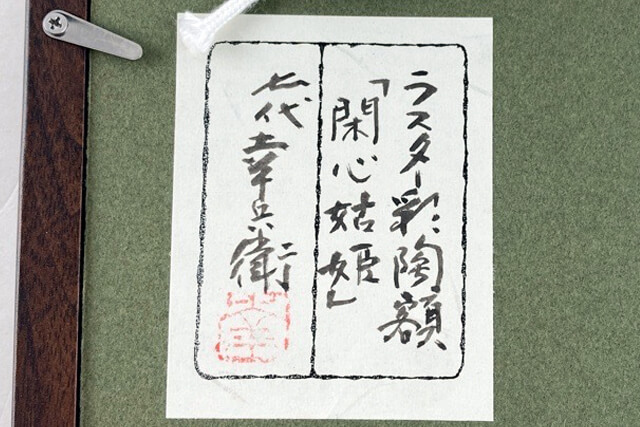 ラスター彩陶額
「閑心姑姫」
七代幸兵衛
幸